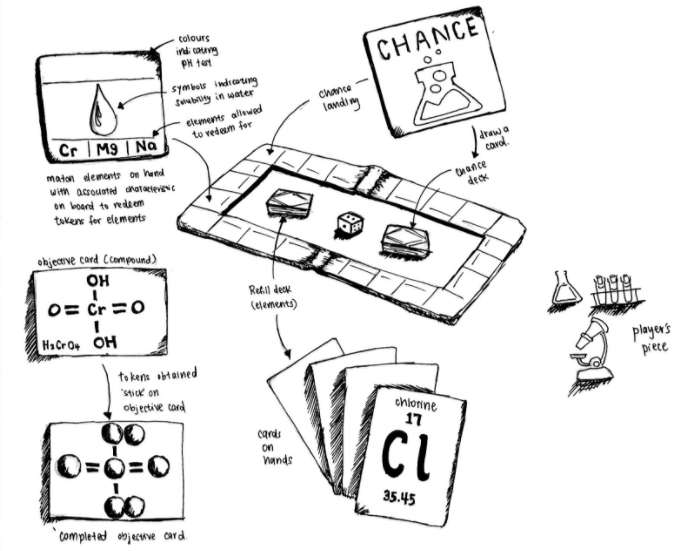 colours
indicating
pH test
symbols indicating
solubility in water
elements allowed
to redeem for
Cr | Mg | Na
maton elements on hand
with associated characteristic
on board to redeem
tokens for elements
CHANCE
chance
landing
draw a
card.
chance
deck
Refill deck
(elements)
objective card (compound)
OH
O = Cr = O
OH
H₂CrO₄
tokens obtained
'stick' on
objective card
'completed objective card
cards
on
hands
chlorine
17
Cl
35.45
player's
piece